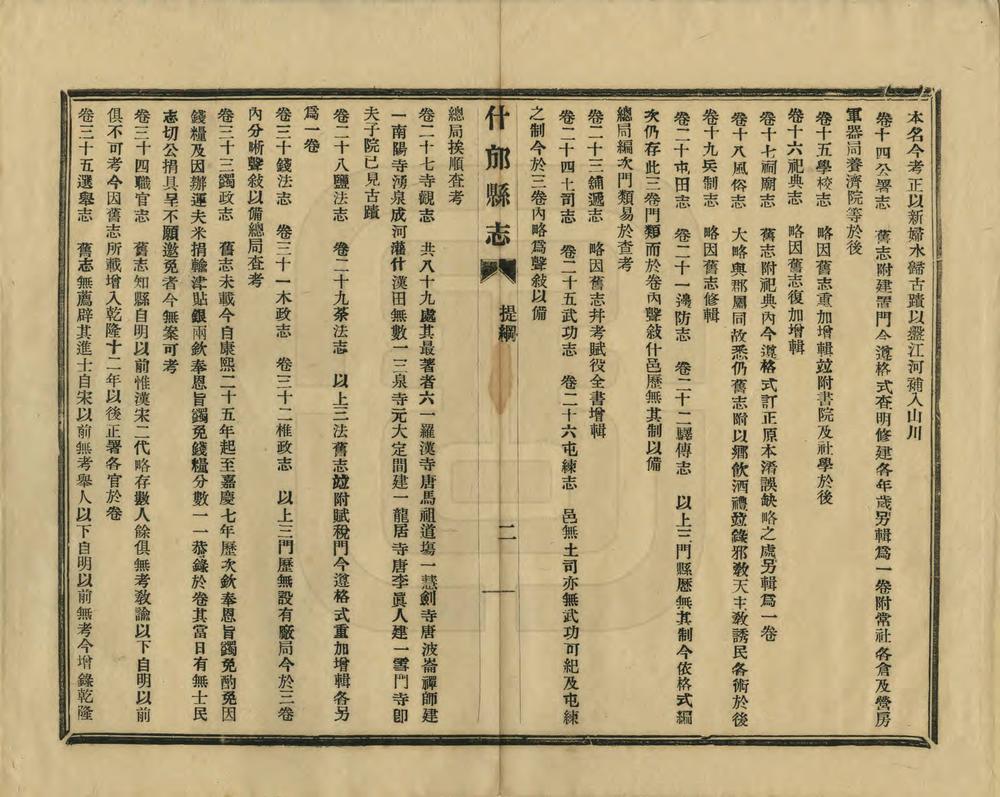 本名今考正以新婦水歸古蹟以盤江河補入山川
卷十四公署志　舊志附建置門今遵格式查明修建各年歲另輯爲一卷附常社各倉及營房
軍器局養濟院等於後
卷十五學校志　略因舊志重加增輯竝附書院及社學於後
卷十六祀典志　略因舊志復加增輯
卷十七祠廟志　舊志附祀典內今遵格式訂正原本淆誤缺略之處另輯爲一卷
卷十八風俗志　大略與郡屬同故悉仍舊志附以鄉飲酒禮竝錄邪教天主教誘民各術於後
卷十九兵制志　略因舊志修輯
卷二十屯田志　卷二十一邊防志　卷二十二驛傳志　以上三門縣歷無其制今依格式編
次仍存此三卷門類而於卷內聲敍什邑歷無其制以備
總局編次門類易於查考
卷二十三鋪遞志　略因舊志幷考賦役全書增輯
卷二十四土司志　卷二十五武功志　卷二十六屯練志　邑無土司亦無武功可紀及屯練
之制今於三卷內略爲聲敍以備
什邡縣志　提綱　二
總局挨順查考
卷二十七寺觀志　共八十九處其最著者六一羅漢寺唐馬祖道塲一慧劍寺唐波崙禪師建
一南陽寺湧泉成河灌什漢田無數一三泉寺元大定間建一龍居寺唐李眞人建一雪門寺卽
夫子院已見古蹟
卷二十八鹽法志　卷二十九茶法志　以上三法舊志竝附賦稅門今遵格式重加增輯各另
爲一卷
卷三十錢法志　卷三十一木政志　卷三十二榷政志　以上三門歷無設有廠局今於三卷
內分晰聲敍以備總局查考
卷三十三蠲政志　舊志未載今自康熙二十五年起至嘉慶七年歷次欽奉恩旨蠲免酌免因
錢糧及因辦運夫米捐輸津貼銀兩欽奉恩旨蠲免錢糧分數一一恭錄於卷其當日有無士民
志切公捐具呈不願邀免者今無案可考
卷三十四職官志　舊志知縣自明以前惟漢宋二代略存數人餘俱無考敎諭以下自明以前
俱不可考今因舊志所載增入乾隆十二年以後正署各官於卷
卷三十五選舉志　舊志無薦辟其進士自宋以前無考舉人以下自明以前無考今增錄乾隆